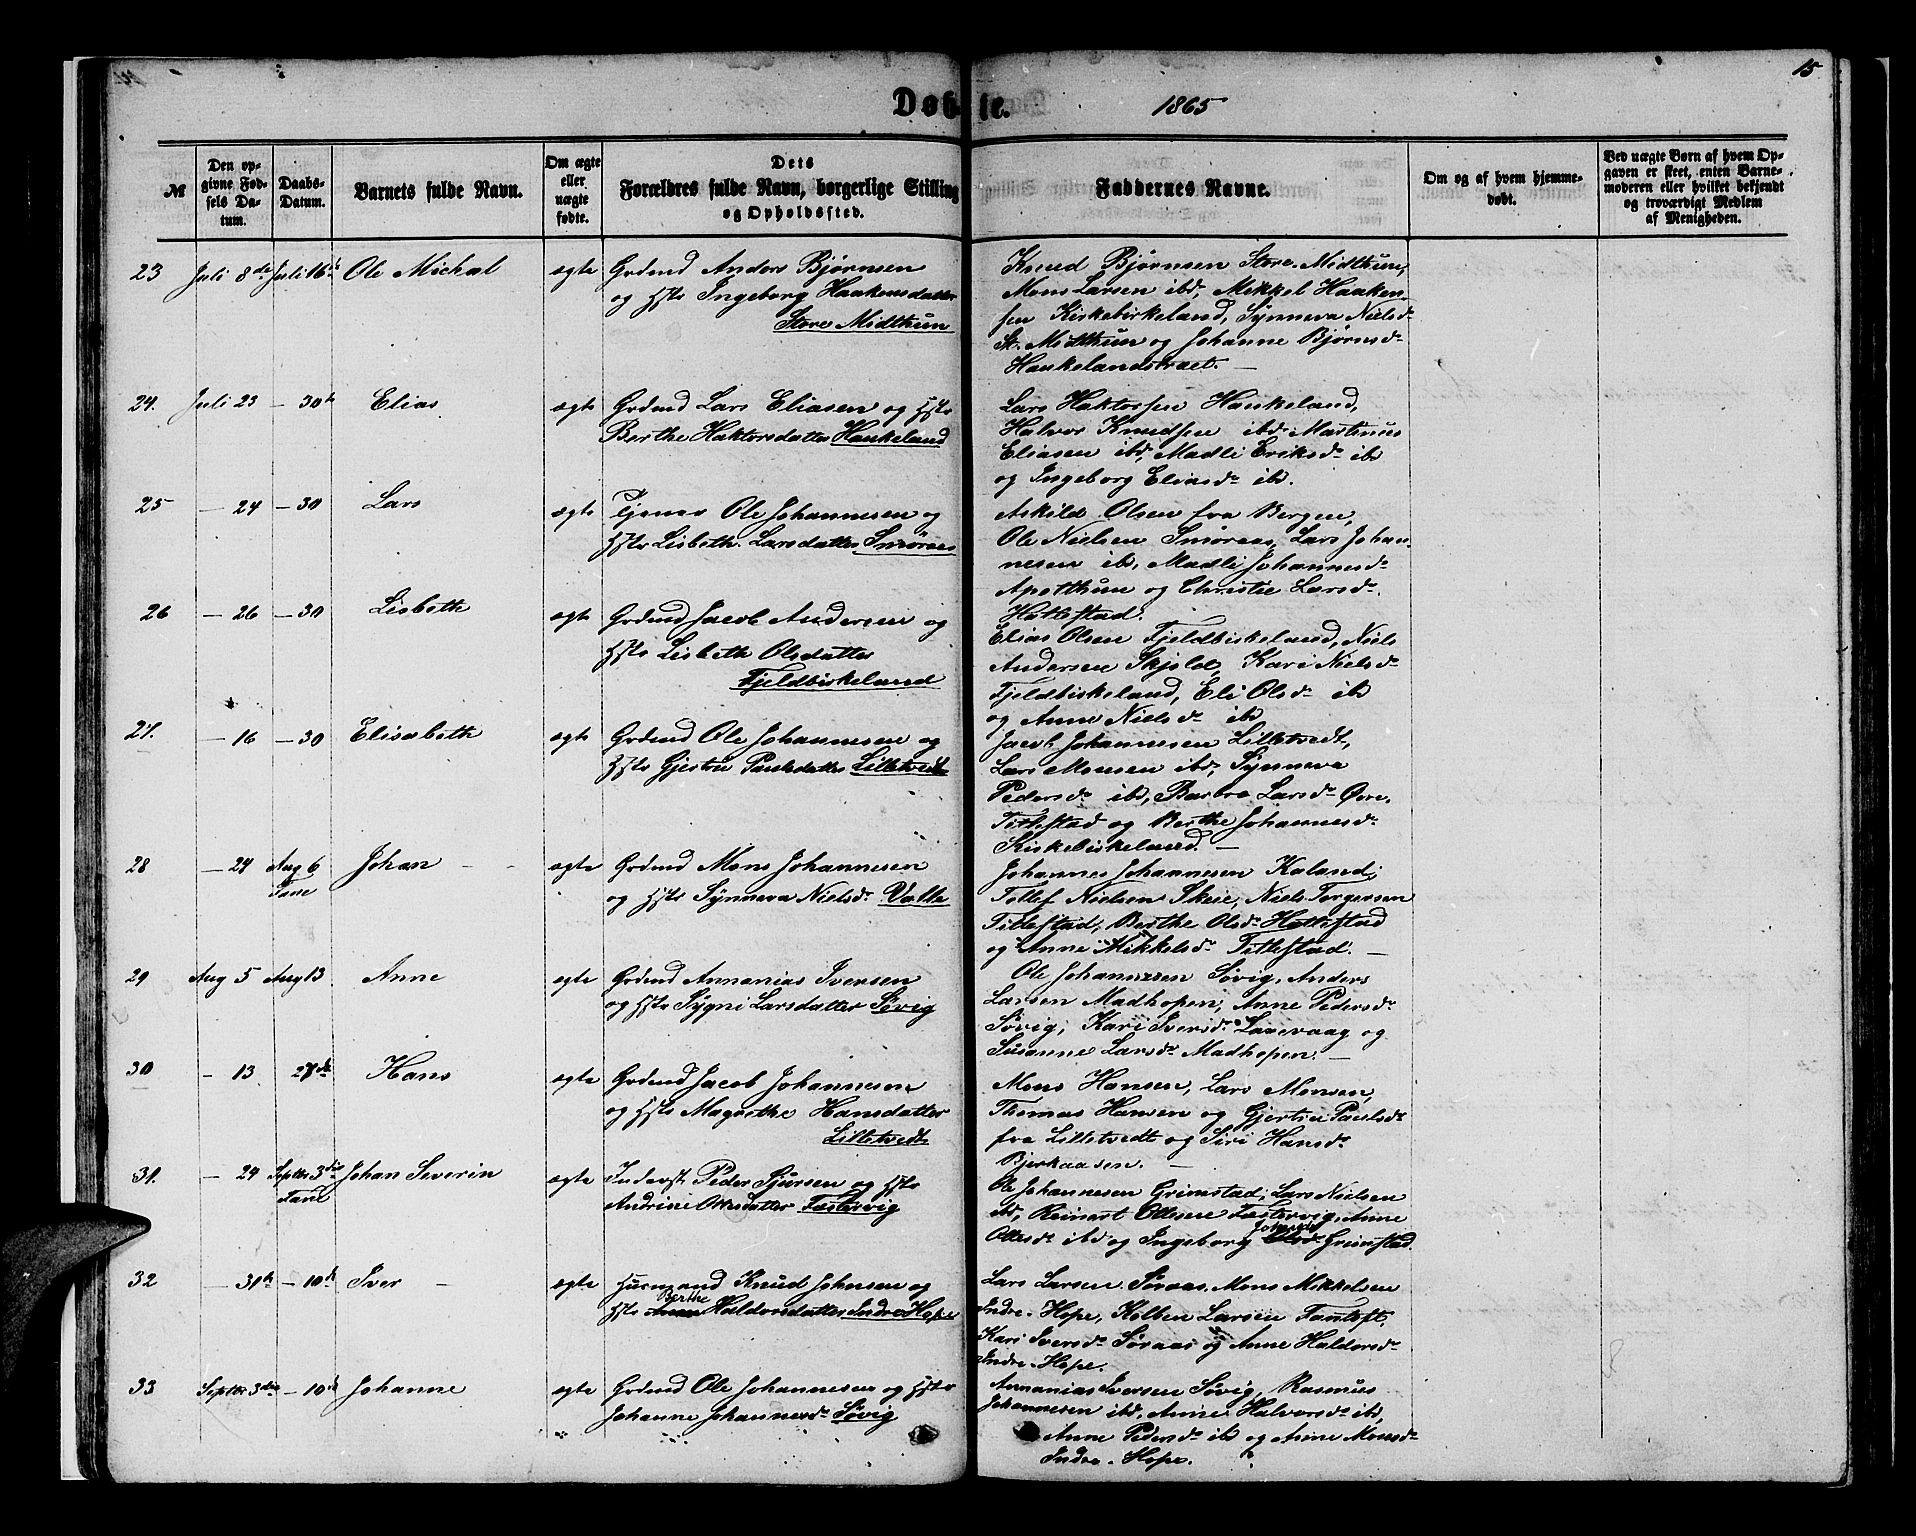 15
Døbte. 1865
№
Den opgivne Fødsels Datum.
Daabs-Datum.
Barnets fulde Navn.
Om ægte eller uægte fødte.
Dets Forældres fulde Navn, borgerlige Stilling og Opholdssted.
Faddernes Navne.
Om og af hvem hjemmedøbt.
Ved uægte Børn af hvem Opgaven er skeet, enten Barnemoderen eller hvilket bekjendt og troværdigt Medlem af Menigheden.
23 Juli 8de Juli 16de Ole Michal ægte Grdmd Anders Bjørnsen
og Hstr Ingeborg Haakensdatter
Store Midthun
Knud Bjørnsen Store Midthun,
Mons Larsen ibd, Mikkel Haaken-
sen Kirkebirkeland, Synneva Nielsdr
St. Midthun og Johanne Bjørnsdr
Haukelandstræet. —
24. Juli 23 — 30te Elias ægte Grdmd Lars Eliasen og Hstr
Berthe Haktorsdatter Haukeland
Lars Haktorsen Haukeland,
Halvor Knudsen ibd Martinus
Eliasen ibd, Madli Eriksdr ibd
og Ingeborg Eliasdr ibd.
25 — 24 — 30 Lars ægte Tjener Ole Johannesen og
Hstr Lisbeth Larsdatter Smøraas
Askild Olsen fra Bergen,
Ole Nielsen Smøraas, Lars Johan-
nesen ibd, Madli Johannesdr
Apelthun og Christie Larsdr
Hatlestad.
26 — 26 — 30 Lisbeth ægte Grdmd Jacob Andersen og
Hstr Lisbeth Olsdatter
Fjeldbirkeland
Elias Olsen Fjeldbirkeland, Niels
Andersen Skjold, Kari Nielsdr
Fjeldbirkeland, Eli Olsdr ibd
og Anne Nielsdr ibd
27. — 16 — 30 Elisabeth ægte Grdmd Ole Johannesen og
Hstr Gjertru Paulsdatter Lilletvedt
Jacob Johannesen Lilletvedt,
Lars Monsen ibd, Synneva
Pedersdr ibd, Barbra Larsdr Øvre
Titlestad og Berthe Johannesdr
Kirkebirkeland. —
28 — 24 Aug 6 Fane Johan — ægte Grdmd Mons Johannesen
og Hstr Synneva Nielsdr Valle
Johannes Johannesen Kaland,
Tollef Nielsen Skeie, Niels Torgersen
Titlestad, Berthe Olsdr Hatlestad
og Anne Mikkelsdr Titlestad. —
29 Aug 5 Aug 13 Anne ægte Grdmd Annanias Iversen
og Hstr Sygni Larsdatter Søvig
Ole Johannesen Søvig, Anders
Larsen Madhopen, Anne Pedersdr
Søvig, Kari Iversdr Laxevaag og
Susanne Larsdr Madhopen. —
30 — 13 27de Hans ægte Grdmd Jacob Johannesen
og Hstr Magrethe Hansdatter
Lilletvedt
Mons Hansen, Lars Monsen,
Thomas Hansen og Gjertru Paulsdr
fra Lilletvedt og Siri Hansdr
Bjerkaasen. —
31. — 24 Septbr 3die Fane Johan Severin ægte Inderst Peder Sjursen og Hstr
Andrine Ottesdatter Fastervig
Ole Johannesen Grimstad, Lars Nielsen
ibd, Reinart Ottesen Fastervig, Anne
Ottesdr ibd og Ingeborg Johannesdr Grimstad.
32 — 31te — 10de Iver — ægte Husmand Knud Johnsen og
Hstr Berthe Haldorsdatter Indre Hope
Lars Larsen Søraas, Mons Mikkelsen
Indre-Hope, Kolben Larsen Fantoft,
Kari Iversdr Søraas og Anne Haldorsdr
Indre-Hope.
33 Septbr 3die — 10de Johanne ægte Grdmd Ole Johannesen og Hstr
Johanne Johannesdr Søvig
Annanias Iversen Søvig, Rasmus
Johannesen ibd, Anne Halvorsdr ibd,
Anne Pedersdr ibd og Anne Monsdr
Indre-Hope.